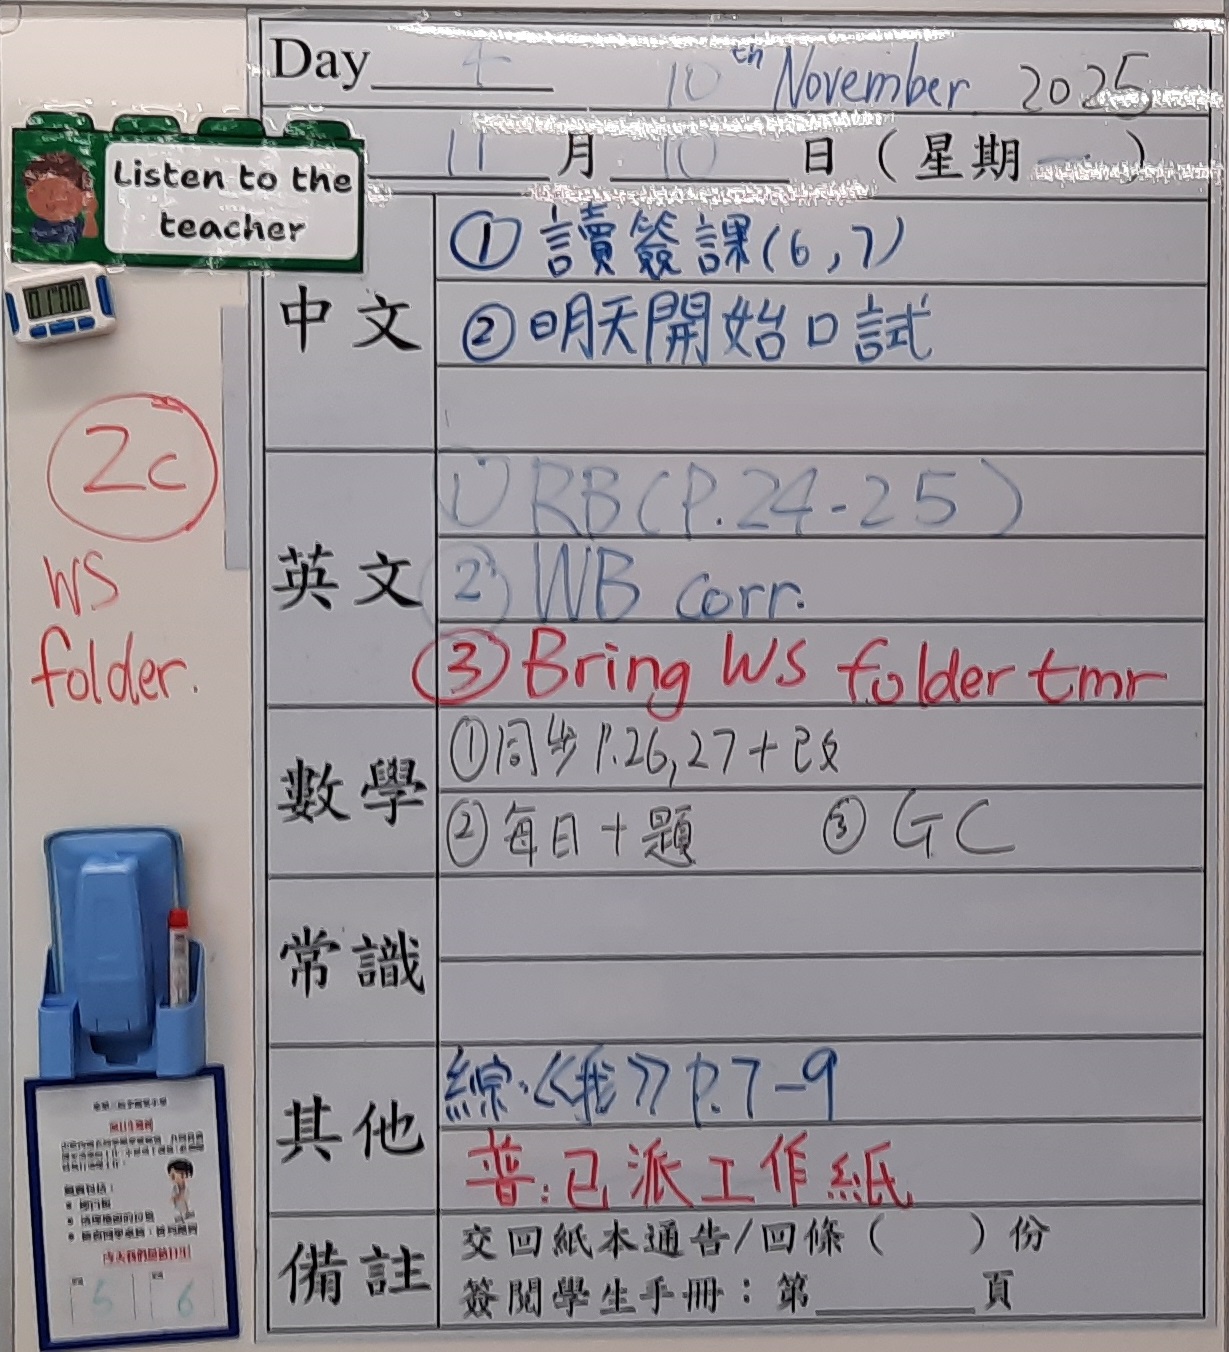 Day 4 10th November 2025
11 月 10 日 ( 星期一 )
Listen to the
teacher
01:00
中文
① 讀簽課(6,7)
② 明天開始口試
2C
WS
folder.
英文
① RB(P.24-25)
② WB corr.
③ Bring WS folder tmr
數學
① 同步 P.26,27+改
② 每日十題 ③ GC
常識
其他
綜.《我》P.7-9
普:已派工作紙
備註
交回紙本通告/回條 ( ) 份
簽閱學生手冊：第 頁
5 6